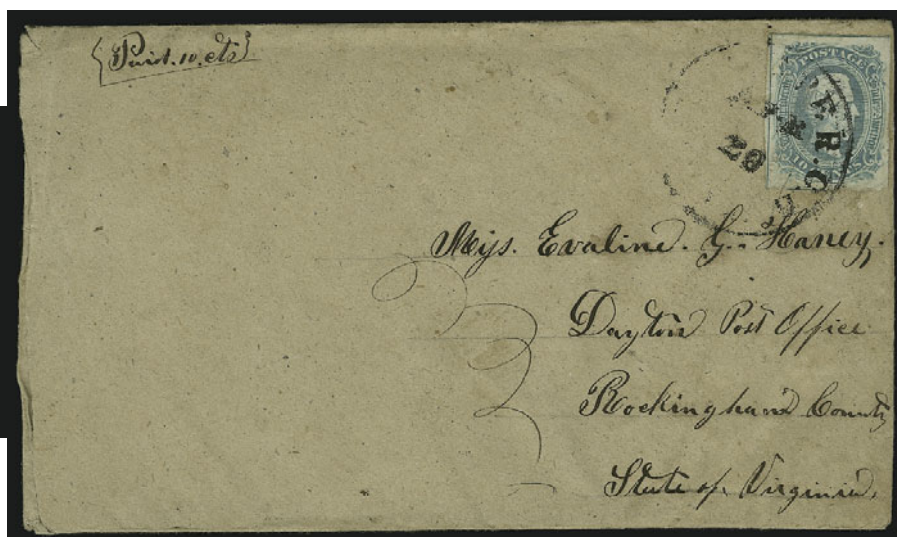 Paid. 10. cts
POSTAGE
20
Miss. Evaline. G. Haney,
Dayton Post Office
Rockingham County
State of. Virginia,